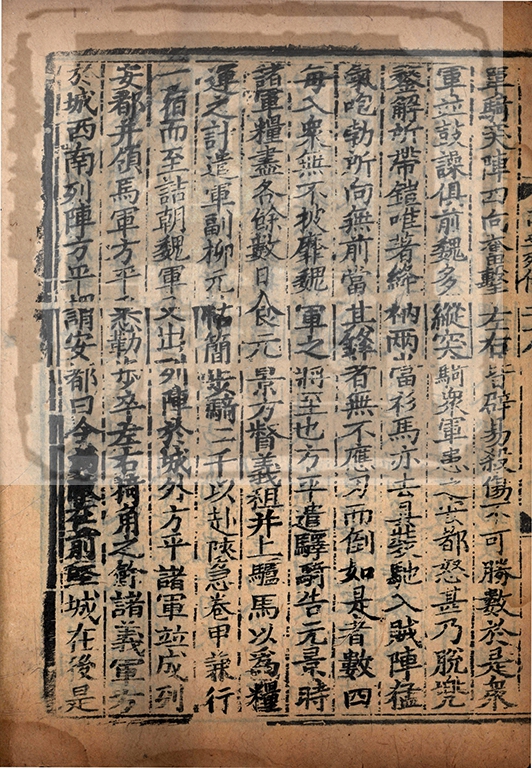 單騎突陣四向奮擊左右皆辟易殺傷不可勝數於是衆
軍並鼓譟俱前魏多縱突騎衆軍患之安都怒甚乃脫兜
鍪解所帶鎧唯著絳衲兩當衫馬亦去具裝馳入賊陣猛
氣咆勃所向無前當其鋒者無不應刃而倒如是者數四
每入衆無不披靡魏軍之將至也方平遣驛騎告元景時
諸軍糧盡各餘數日食元景方督義租并上驢馬以爲糧
運之計遣軍副柳元怙簡步騎二千以赴陝急卷甲兼行
一宿而至詰朝魏軍又出列陣於城外方平諸軍並成列
安都并領馬軍方平悉勒步卒左右掎角之餘諸義軍方
於城西南列陣方平謂安都曰今在前堅城在後是